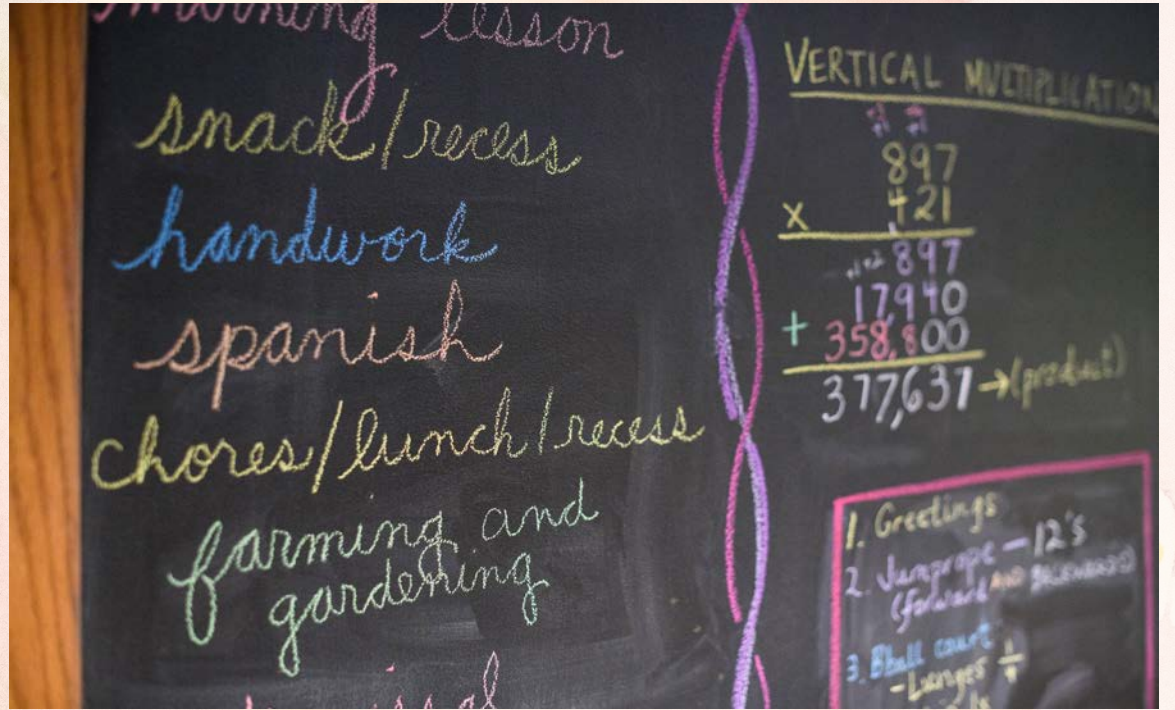 morning lesson
snack/recess
handwork
spanish
chores/lunch/recess
farming and
gardening
VERTICAL MULTIPLICATION
897
x 421
897
17,940
+ 358,800
377,637 → (product)
1. Greetings
2. Jumprope – 12's
(forward AND BACKWARDS)
3. Bball count
- Lunges